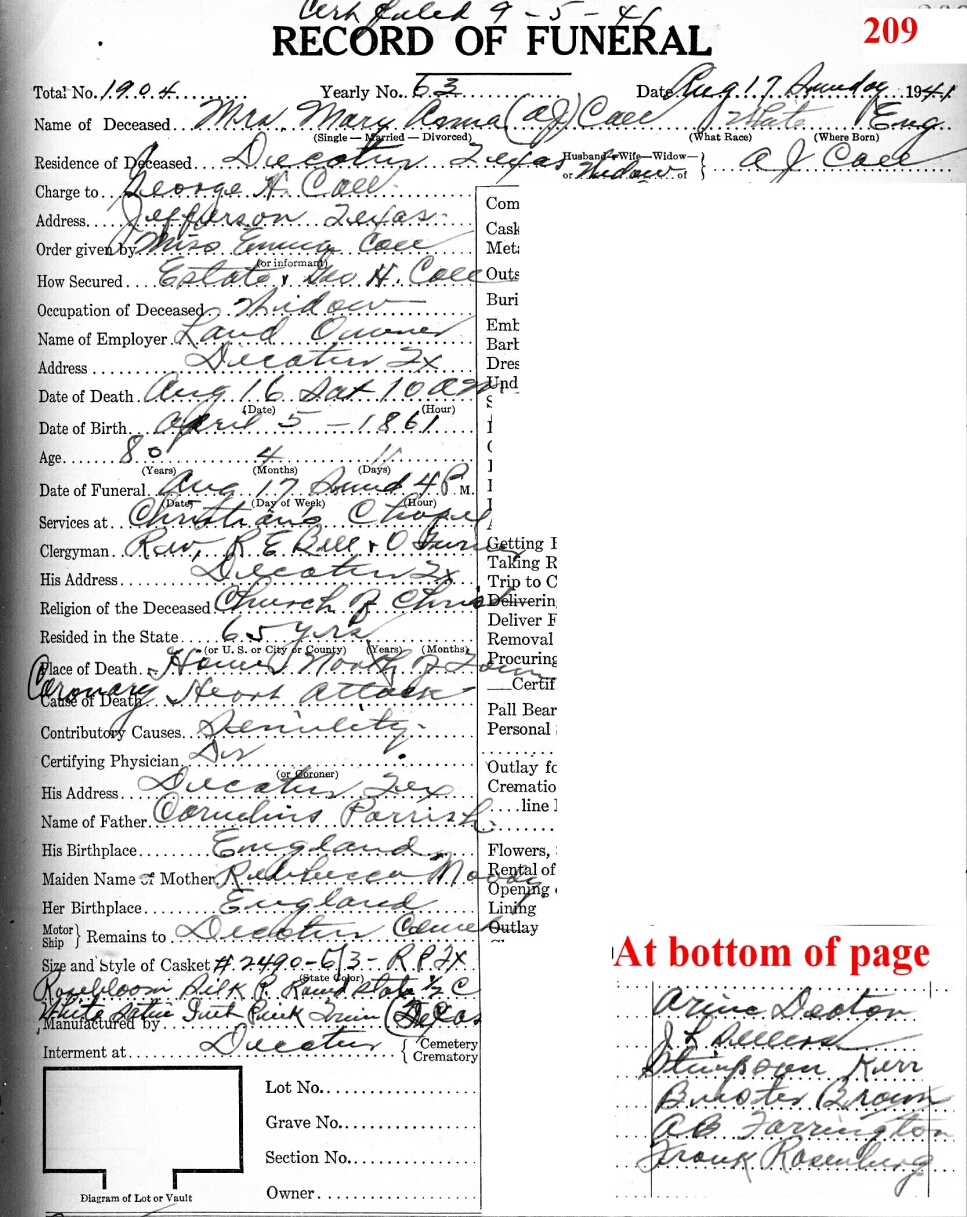 Cert filed 9-5-41
209
RECORD OF FUNERAL
Total No. 1904 Yearly No. 63 Date Aug 17 Sunday 1941
Name of Deceased Mrs. Mary (AJ) Call White Eng
(Single — Married — Divorced) (What Race) (Where Born)
Residence of Deceased Decatur Texas Husband—Wife—Widow— or Widow of } A J Call
Charge to George H. Call
Address Jefferson Texas
Order given by Miss Emma Call
(or informant)
How Secured Estate & Geo H. Call
Occupation of Deceased Widow
Name of Employer Land Owner
Address Decatur Tx
Date of Death Aug 16 Sat 10 AM
(Date) (Hour)
Date of Birth April 5 - 1861
Age 80 4 11
(Years) (Months) (Days)
Date of Funeral Aug 17 Sund 4 P. M.
(Date) (Day of Week) (Hour)
Services at Christian's Chapel
Clergyman Rev. R E Bell & O
His Address Decatur Tx
Religion of the Deceased Church of Christ
Resided in the State 65 yrs
(or U. S. or City or County) (Years) (Months)
Place of Death Home North of Town
Coronary
Cause of Death Heart Attack
Contributory Causes Senility
Certifying Physician Dr
(or Coroner)
His Address Decatur Tex
Name of Father Cornelius Parrish
His Birthplace England
Maiden Name of Mother Rebbecca Moody
Her Birthplace England
Motor Ship } Remains to Decatur Cemet
Size and Style of Casket # 2490-6/3- R P TX
(State Color)
Rosebloom Silk P. Round State 1/2 C
White Satin Pink (Texas
Manufactured by
Interment at Decatur { Cemetery Crematory
Lot No.
Grave No.
Section No.
Owner
Diagram of Lot or Vault
Com
Cask
Meta
Outs
Buri
Emb
Barb
Dres
Und
Getting
Taking R
Trip to C
Deliverin
Deliver F
Removal
Procuring
Certif
Pall Bear
Personal
Outlay fo
Crematio
line
Flowers,
Rental of
Opening
Lining
Outlay
At bottom of page
Deaton
J L Sellers
Stimpson Kerr
Buster Brown
AB Farrington
Frank Rosenburg